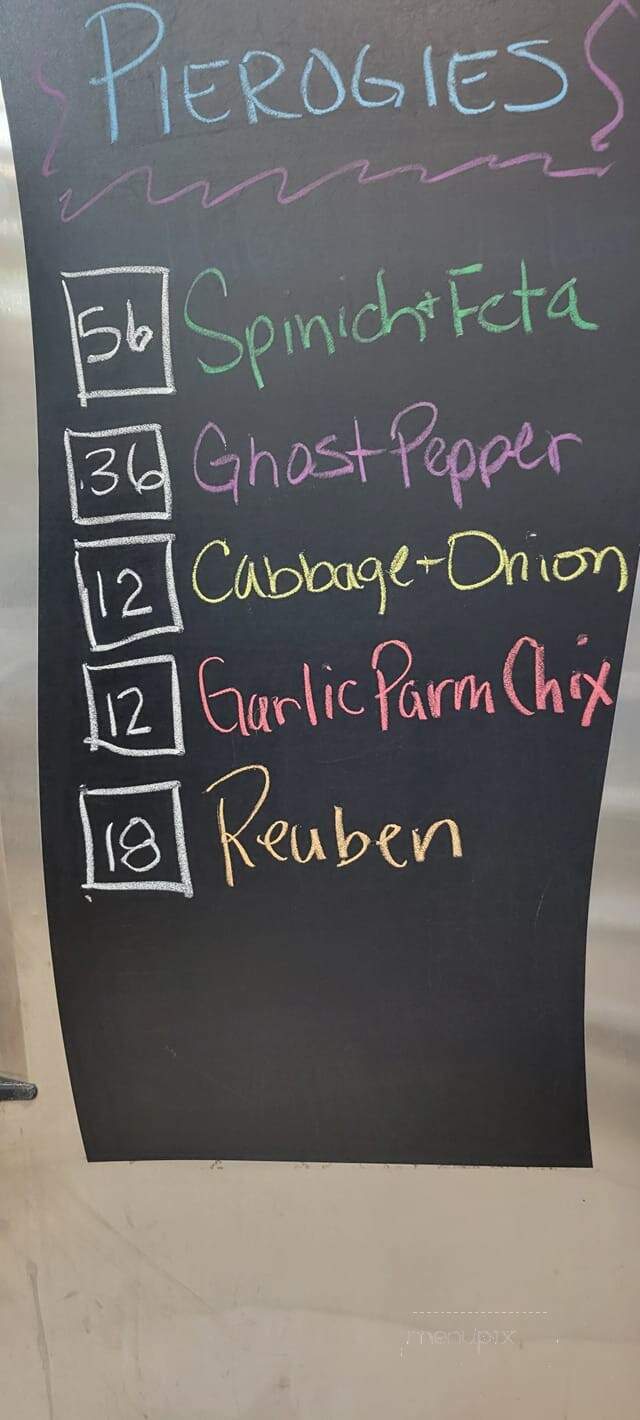 PIEROGIES
56 Spinich+Feta
36 Ghost Pepper
12 Cabbage+Onion
12 Garlic Parm Chix
18 Reuben
menupix